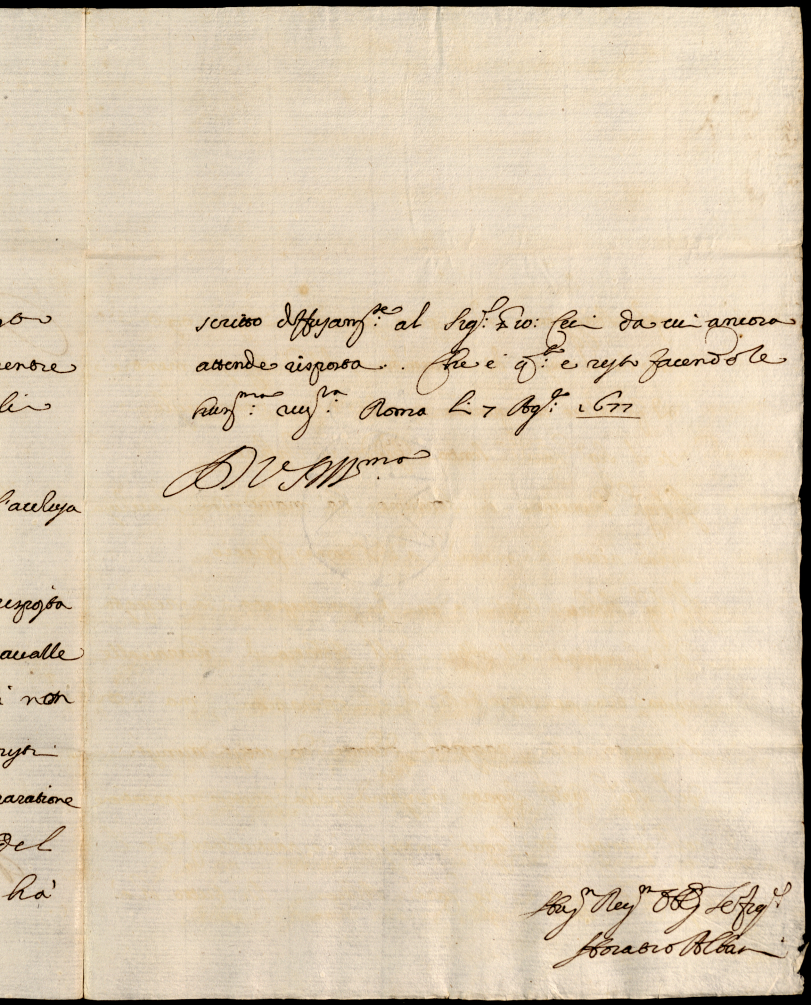 mentre
l'acclusa
risposta
avalle
non
aratione
del
hà
scritto diffusam:te al Sig:r Gio: Ceci da cui ancora
attende risposta. Che è q:to e resto facendole
hum:ma riu:za Roma li 7 Ag:to 1677
D V S Ill:ma
Se:r fig:l
Horatio Albani